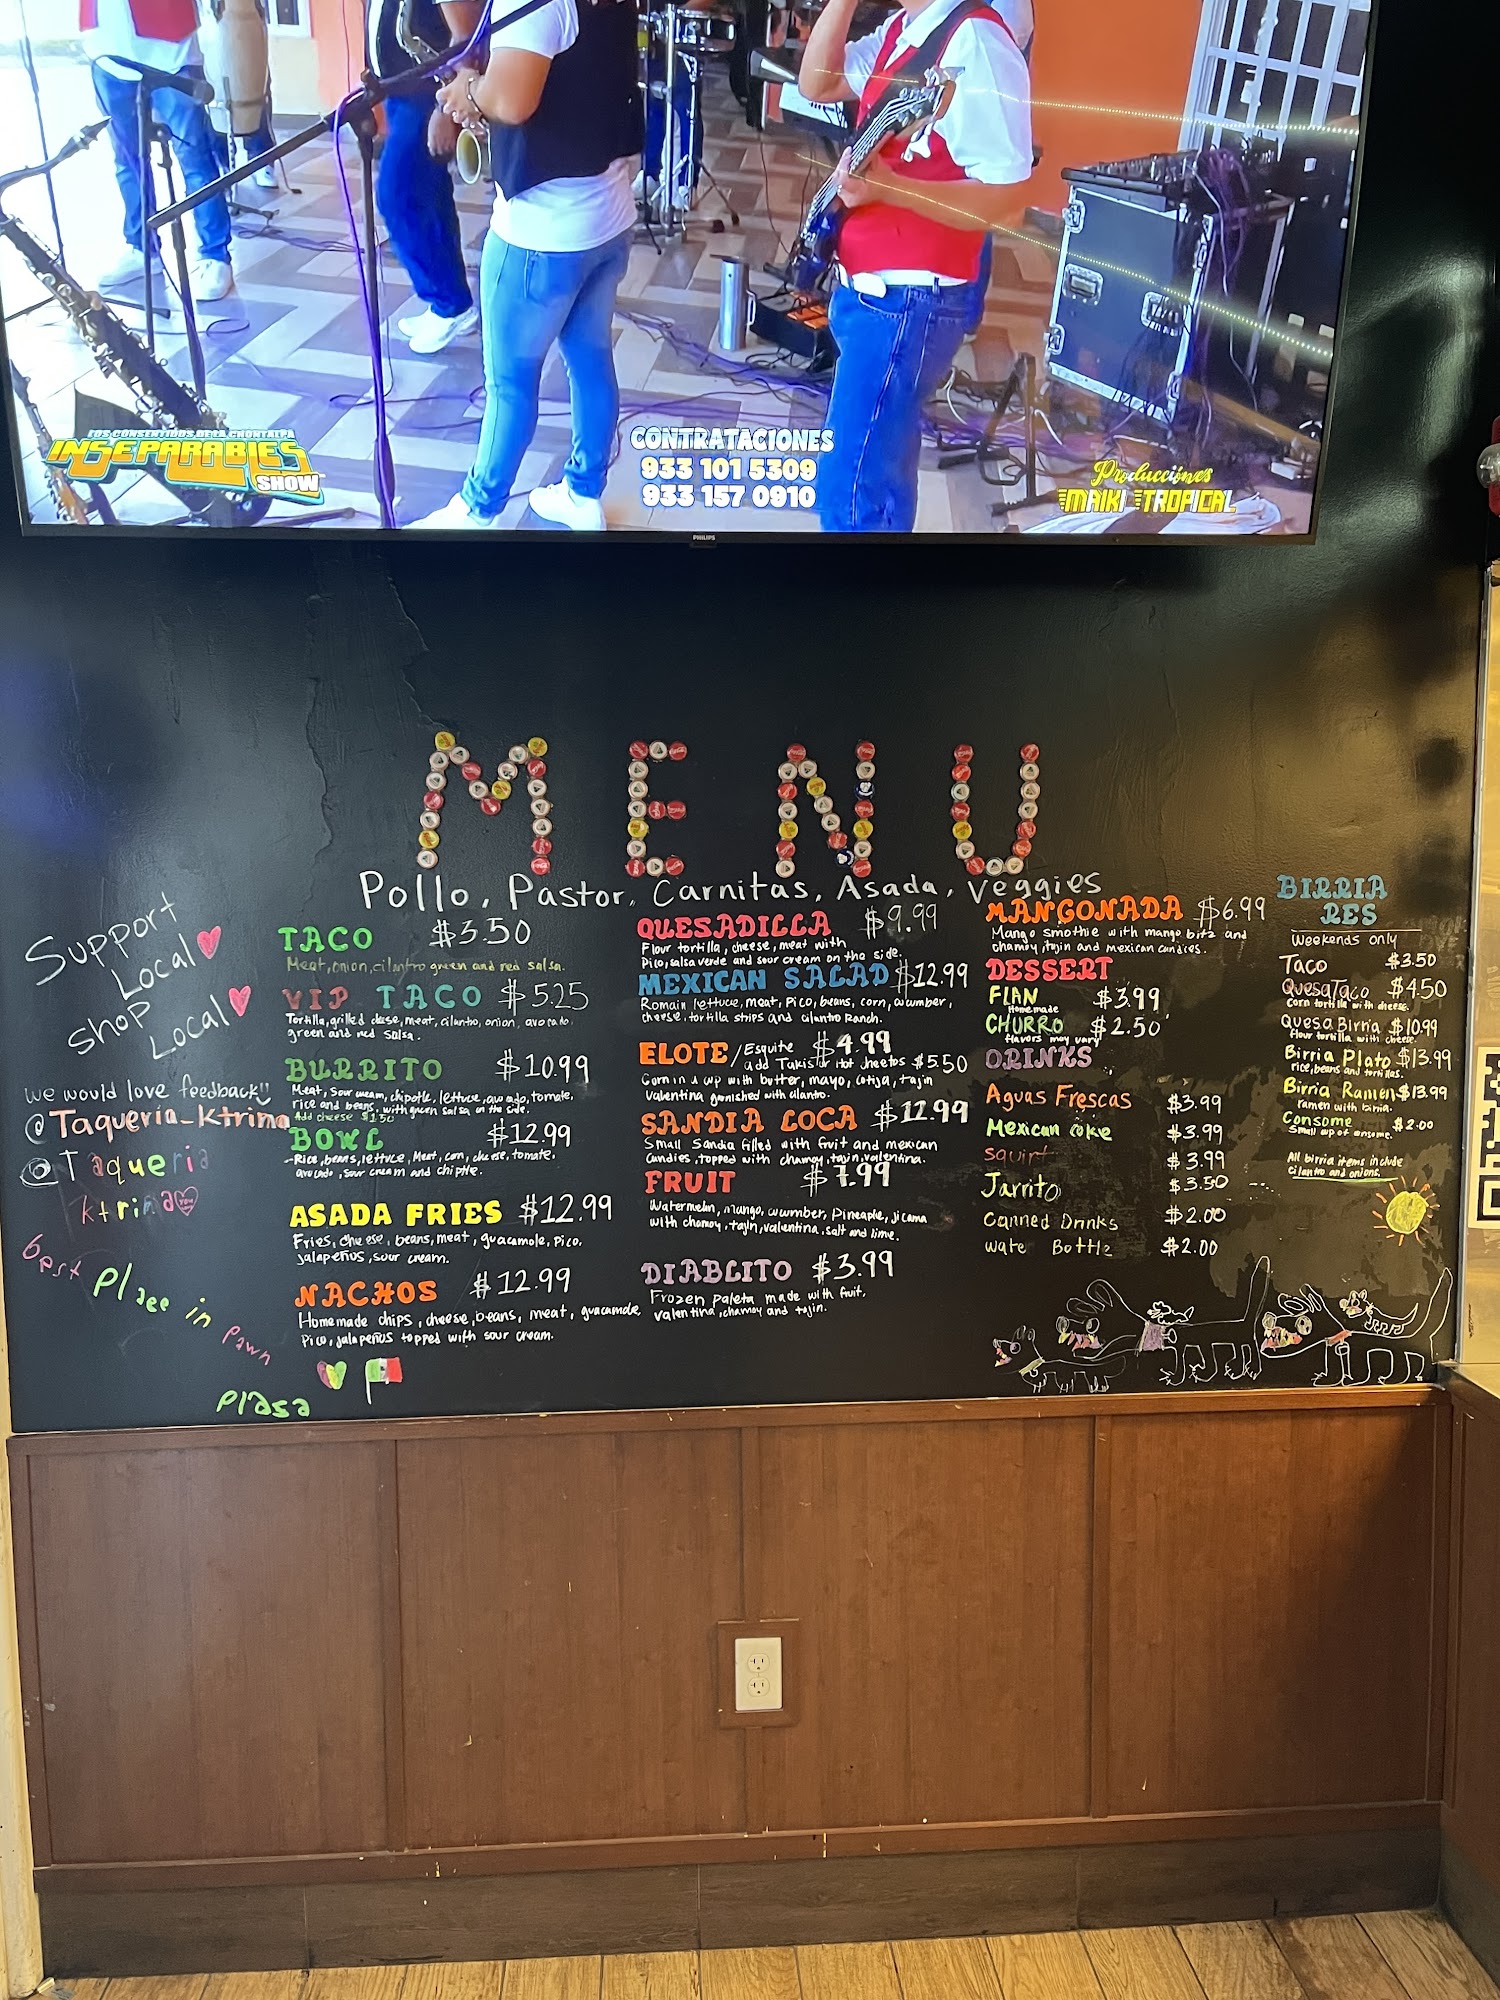 LOS CONSENTIDOS DE LA CHONTALPA
INSEPARABLES
SHOW
CONTRATACIONES
933 101 5309
933 157 0910
Producciones
MAIKI TROPICAL
PHILIPS
MENU
Pollo, Pastor, Carnitas, Asada, Veggies
Support
Local
Shop
Local
we would love feedback!!
@Taqueria_Ktrima
@Taqueria
ktrima
best place in
pawn
plasa
TACO $3.50
Meat, onion, cilantro green and red salsa.
VIP TACO $5.25
Tortilla, grilled cheese, meat, cilantro, onion, avocado,
green and red salsa.
BURRITO $10.99
Meat, sour cream, chipotle, lettuce, avocado, tomate,
rice and beans, with green salsa on the side.
Add cheese $1.50
BOWL $12.99
-Rice, beans, lettuce, Meat, corn, cheese, tomate,
avocado, sour cream and chipotle.
ASADA FRIES $12.99
Fries, cheese, beans, meat, guacamole, pico,
jalapeños, sour cream.
NACHOS $12.99
Homemade chips, cheese, beans, meat, guacamole,
Pico, jalapeñus topped with sour cream.
QUESADILLA $9.99
Flour tortilla, cheese, meat with
Pico, salsa verde and sour cream on the side.
MEXICAN SALAD $12.99
Romain lettuce, meat, Pico, beans, corn, cucumber,
cheese, tortilla strips and cilantro Ranch.
ELOTE / Esquite $4.99
add Takis or Hot cheetos $5.50
Corn in a cup with butter, mayo, cotija, tajin
Valentina garnished with cilantro.
SANDIA LOCA $12.99
Small Sandia filled with fruit and mexican
Candies, topped with chamoy, tajin, valentina.
FRUIT $7.99
Watermelon, mango, cucumber, Pineaple, jicama
with chamoy, tajin, valentina, salt and lime.
DIABLITO $3.99
Frozen paleta made with fruit,
valentina, chamoy and tajin.
MANGONADA $6.99
Mango smothie with mango bitz and
chamoy, tajin and mexican candies.
DESSERT
FLAN $3.99
Homemade
CHURRO $2.50
flavors may vary
DRINKS
Aguas Frescas $3.99
Mexican coke $3.99
squirt $3.99
Jarrito $3.50
Canned Drinks $2.00
wate Bottle $2.00
BIRRIA
RES
Weekends only
Taco $3.50
QuesaTaco $4.50
Corn tortilla with cheese.
Quesa Birria $10.99
Flour tortilla with cheese.
Birria Plato $13.99
rice, beans and tortillas.
Birria Ramen $13.99
ramen with birria.
Consome $2.00
Small cup of consome.
All birria items include
cilantro and onions.